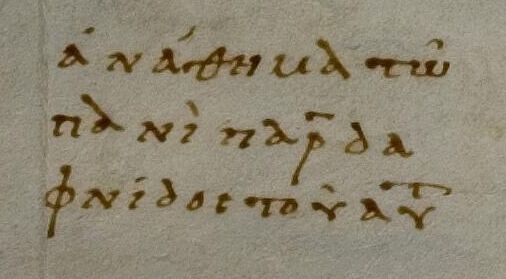 ἀνάθημα τῶ
πανὶ παρ δα
φνίδος τοῦ αυτ